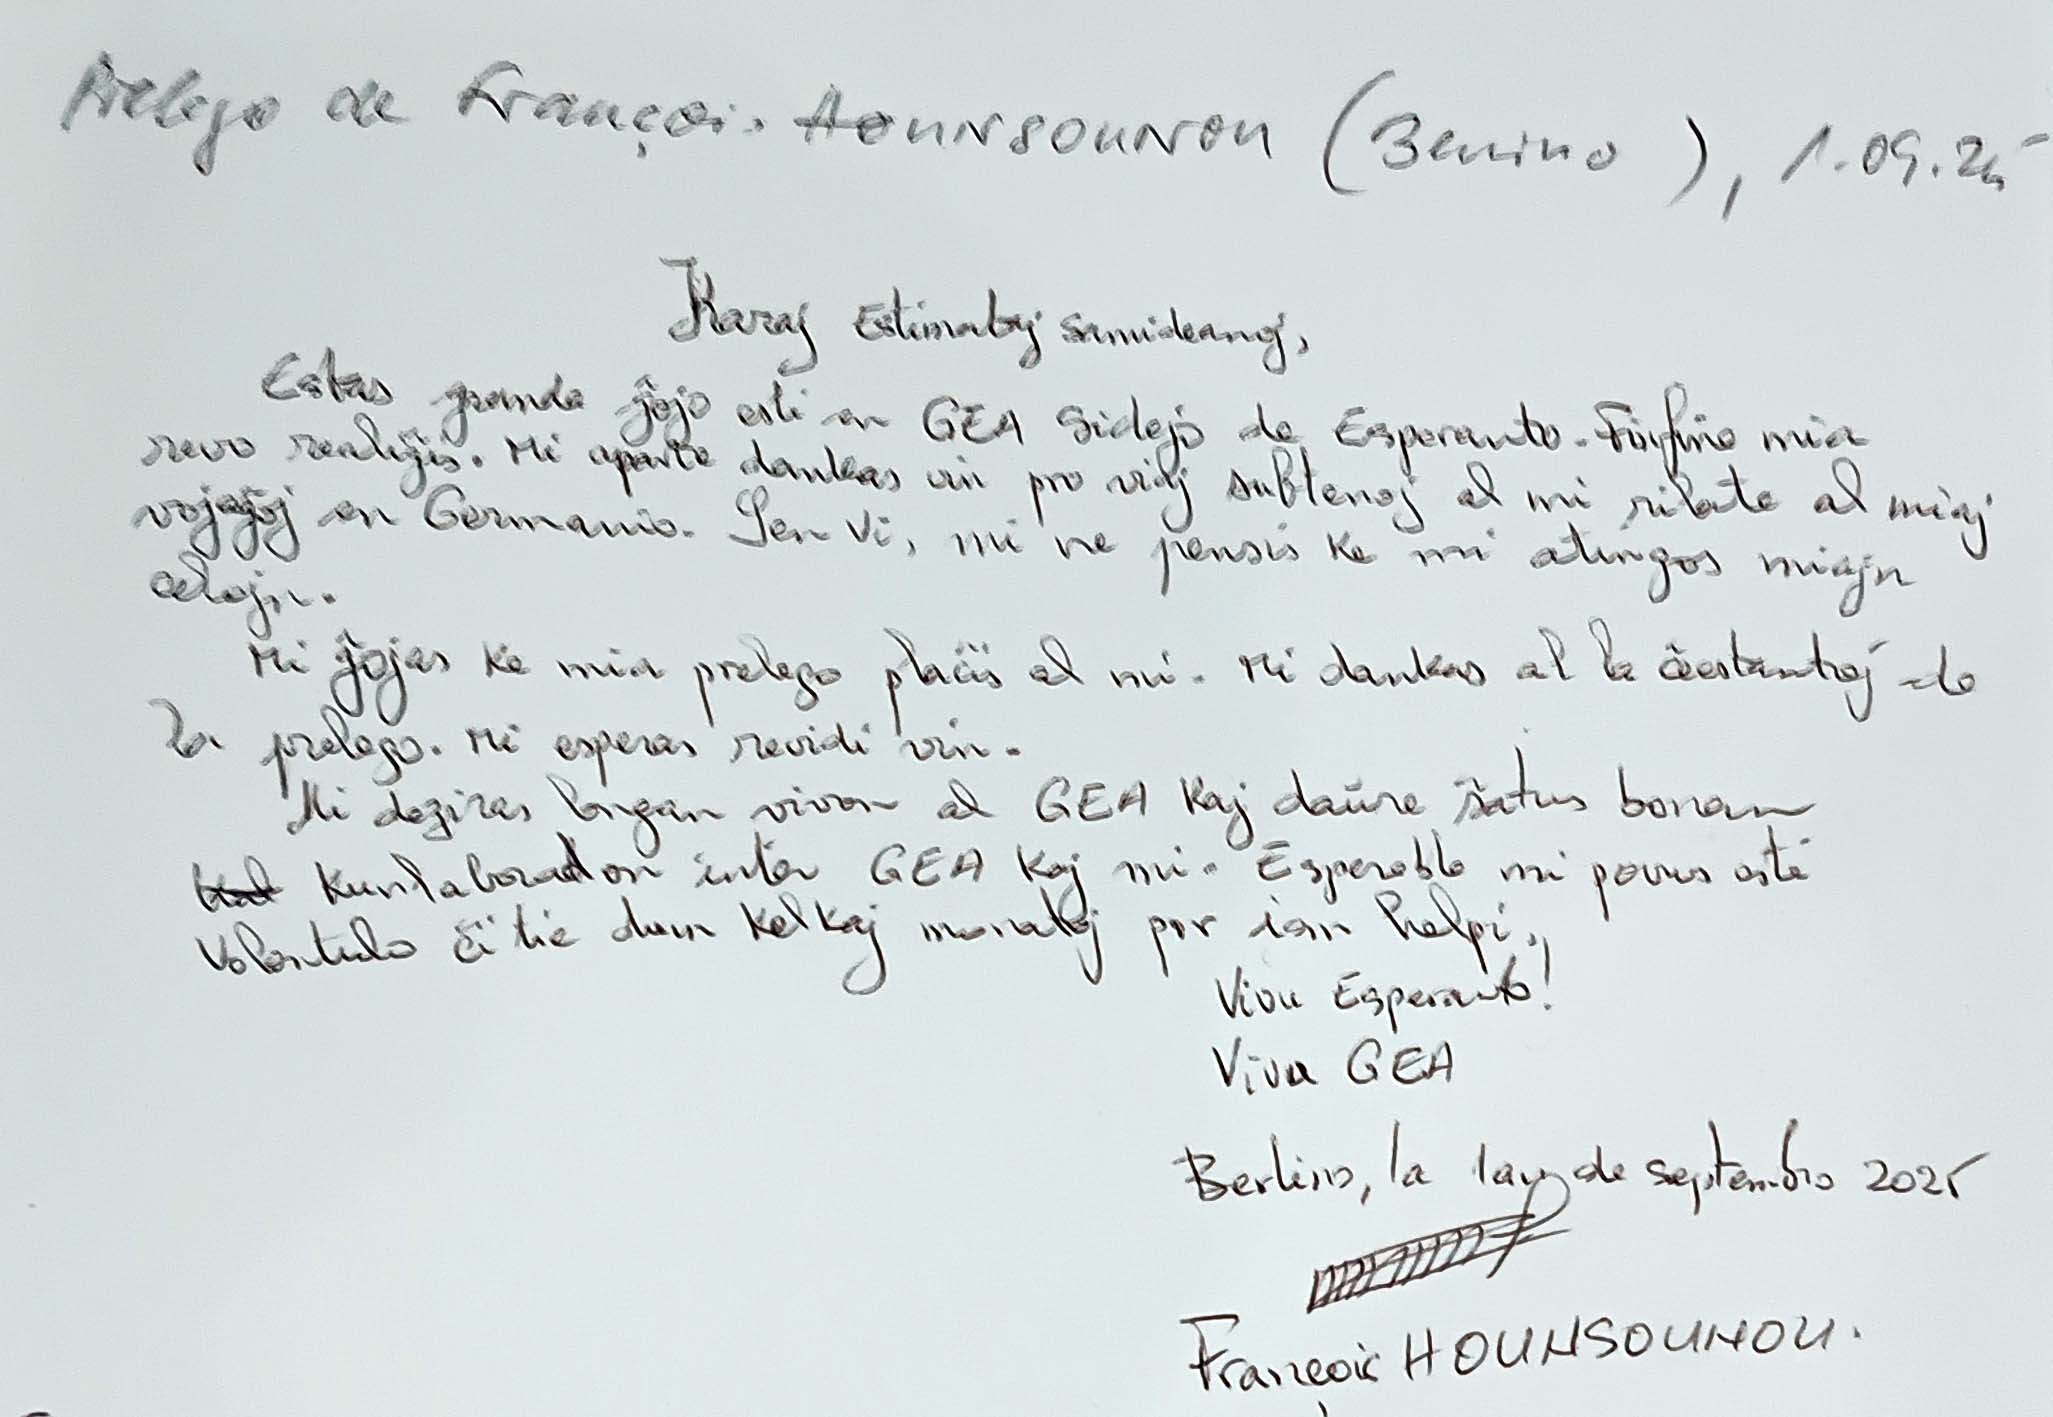 Prelego de François HOUNSOUNOU (Benino), 1.09.25
Karaj Estimataj samideanoj,
Estas granda ĝojo esti en GEA sidejo de Esperanto. Finfine mia
revo realiĝis. Mi aparte dankas vin pro viaj subtenoj al mi rilate al miaj
vojaĝoj en Germanio. Sen vi, mi ne pensis ke mi atingos miajn
celojn.
Mi ĝojas ke mia prelego plaĉis al mi. Mi dankas al la ĉeestantoj de
la prelego. Mi esperas revidi vin.
Mi deziras longan vivon al GEA kaj daŭre ŝatus bonan
kunlaboradon inter GEA kaj mi. Espereble mi povus esti
volontulo ĉi tie dum kelkaj monatoj por iam helpi.
Vivu Esperanto!
Vivu GEA
Berlino, la 1an de septembro 2025
François HOUNSOUNOU.